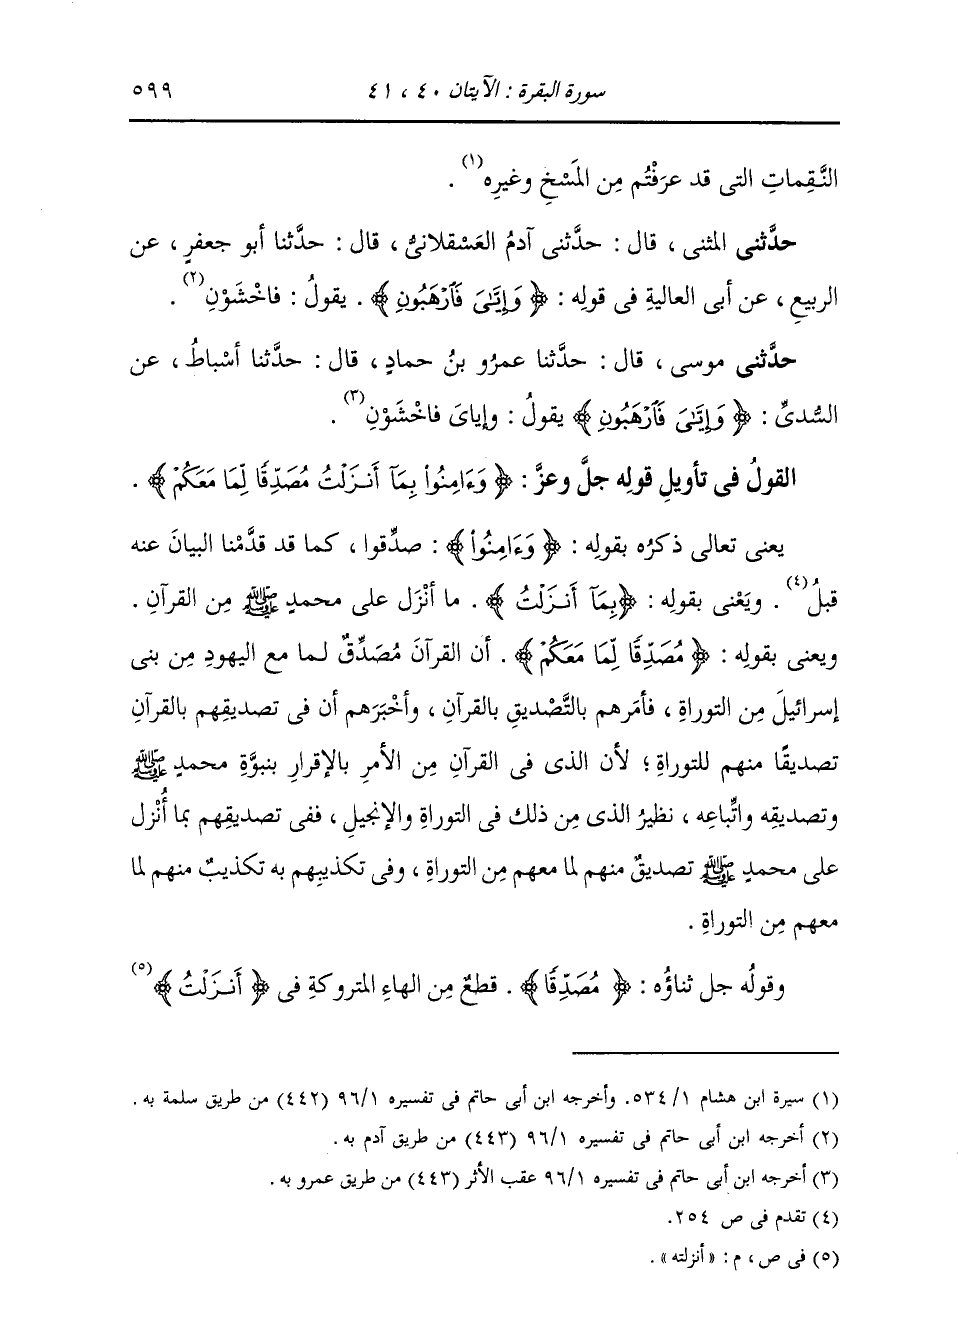 سورة البقرة : الآيتان ٤٠ ، ٤١ ٥٩٩
النَّقِماتِ التى قد عرَفْتُم مِن المَسْخِ وغيرِه(١) .
حدَّثنى المثنى ، قال : حدَّثنى آدمُ العَسْقلانىُّ ، قال : حدَّثنا أبو جعفرٍ ، عن
الربيعِ ، عن أبى العاليةِ فى قولِه : ﴿ وَإِيَّٰىَ فَٱرْهَبُونِ ﴾ . يقولُ : فاخْشَوْنِ(٢) .
حدَّثنى موسى ، قال : حدَّثنا عمرُو بنُ حمادٍ ، قال : حدَّثنا أسْباطُ ، عن
السُّدىِّ : ﴿ وَإِيَّٰىَ فَٱرْهَبُونِ ﴾ يقولُ : وإياىَ فاخْشَوْنِ(٣) .
القولُ فى تأويلِ قولِه جلَّ وعزَّ : ﴿ وَءَامِنُواْ بِمَآ أَنزَلْتُ مُصَدِّقًا لِّمَا مَعَكُمْ ﴾ .
يعنى تعالى ذكرُه بقولِه : ﴿ وَءَامِنُواْ ﴾ : صدِّقوا ، كما قد قدَّمْنا البيانَ عنه
قبلُ(٤) . ويَعْنى بقولِه : ﴿ بِمَآ أَنزَلْتُ ﴾ . ما أنْزَل على محمدٍ ﷺ مِن القرآنِ .
ويعنى بقولِه : ﴿ مُصَدِّقًا لِّمَا مَعَكُمْ ﴾ . أن القرآنَ مُصَدِّقٌ لما مع اليهودِ مِن بنى
إسرائيلَ مِن التوراةِ ، فأمَرهم بالتَّصْديقِ بالقرآنِ ، وأخْبَرَهم أن فى تصديقِهم بالقرآنِ
تصديقًا منهم للتوراةِ ؛ لأن الذى فى القرآنِ مِن الأمرِ بالإقرارِ بنبوَّةِ محمدٍ ﷺ
وتصديقِه واتِّباعِه ، نظيرُ الذى مِن ذلك فى التوراةِ والإنجيلِ ، ففى تصديقِهم بما أُنْزِل
على محمدٍ ﷺ تصديقٌ منهم لما معهم مِن التوراةِ ، وفى تكذيبِهم به تكذيبٌ منهم لما
معهم مِن التوراةِ .
وقولُه جل ثناؤُه : ﴿ مُصَدِّقًا ﴾ . قطعٌ مِن الهاءِ المتروكةِ فى ﴿ أَنزَلْتُ ﴾(٥)
(١) سيرة ابن هشام ١/ ٥٣٤. وأخرجه ابن أبى حاتم فى تفسيره ٩٦/١ (٤٤٢) من طريق سلمة به .
(٢) أخرجه ابن أبى حاتم فى تفسيره ٩٦/١ (٤٤٣) من طريق آدم به .
(٣) أخرجه ابن أبى حاتم فى تفسيره ٩٦/١ عقب الأثر (٤٤٣) من طريق عمرو به .
(٤) تقدم فى ص ٢٥٤.
(٥) فى ص ، م : « أنزلته » .